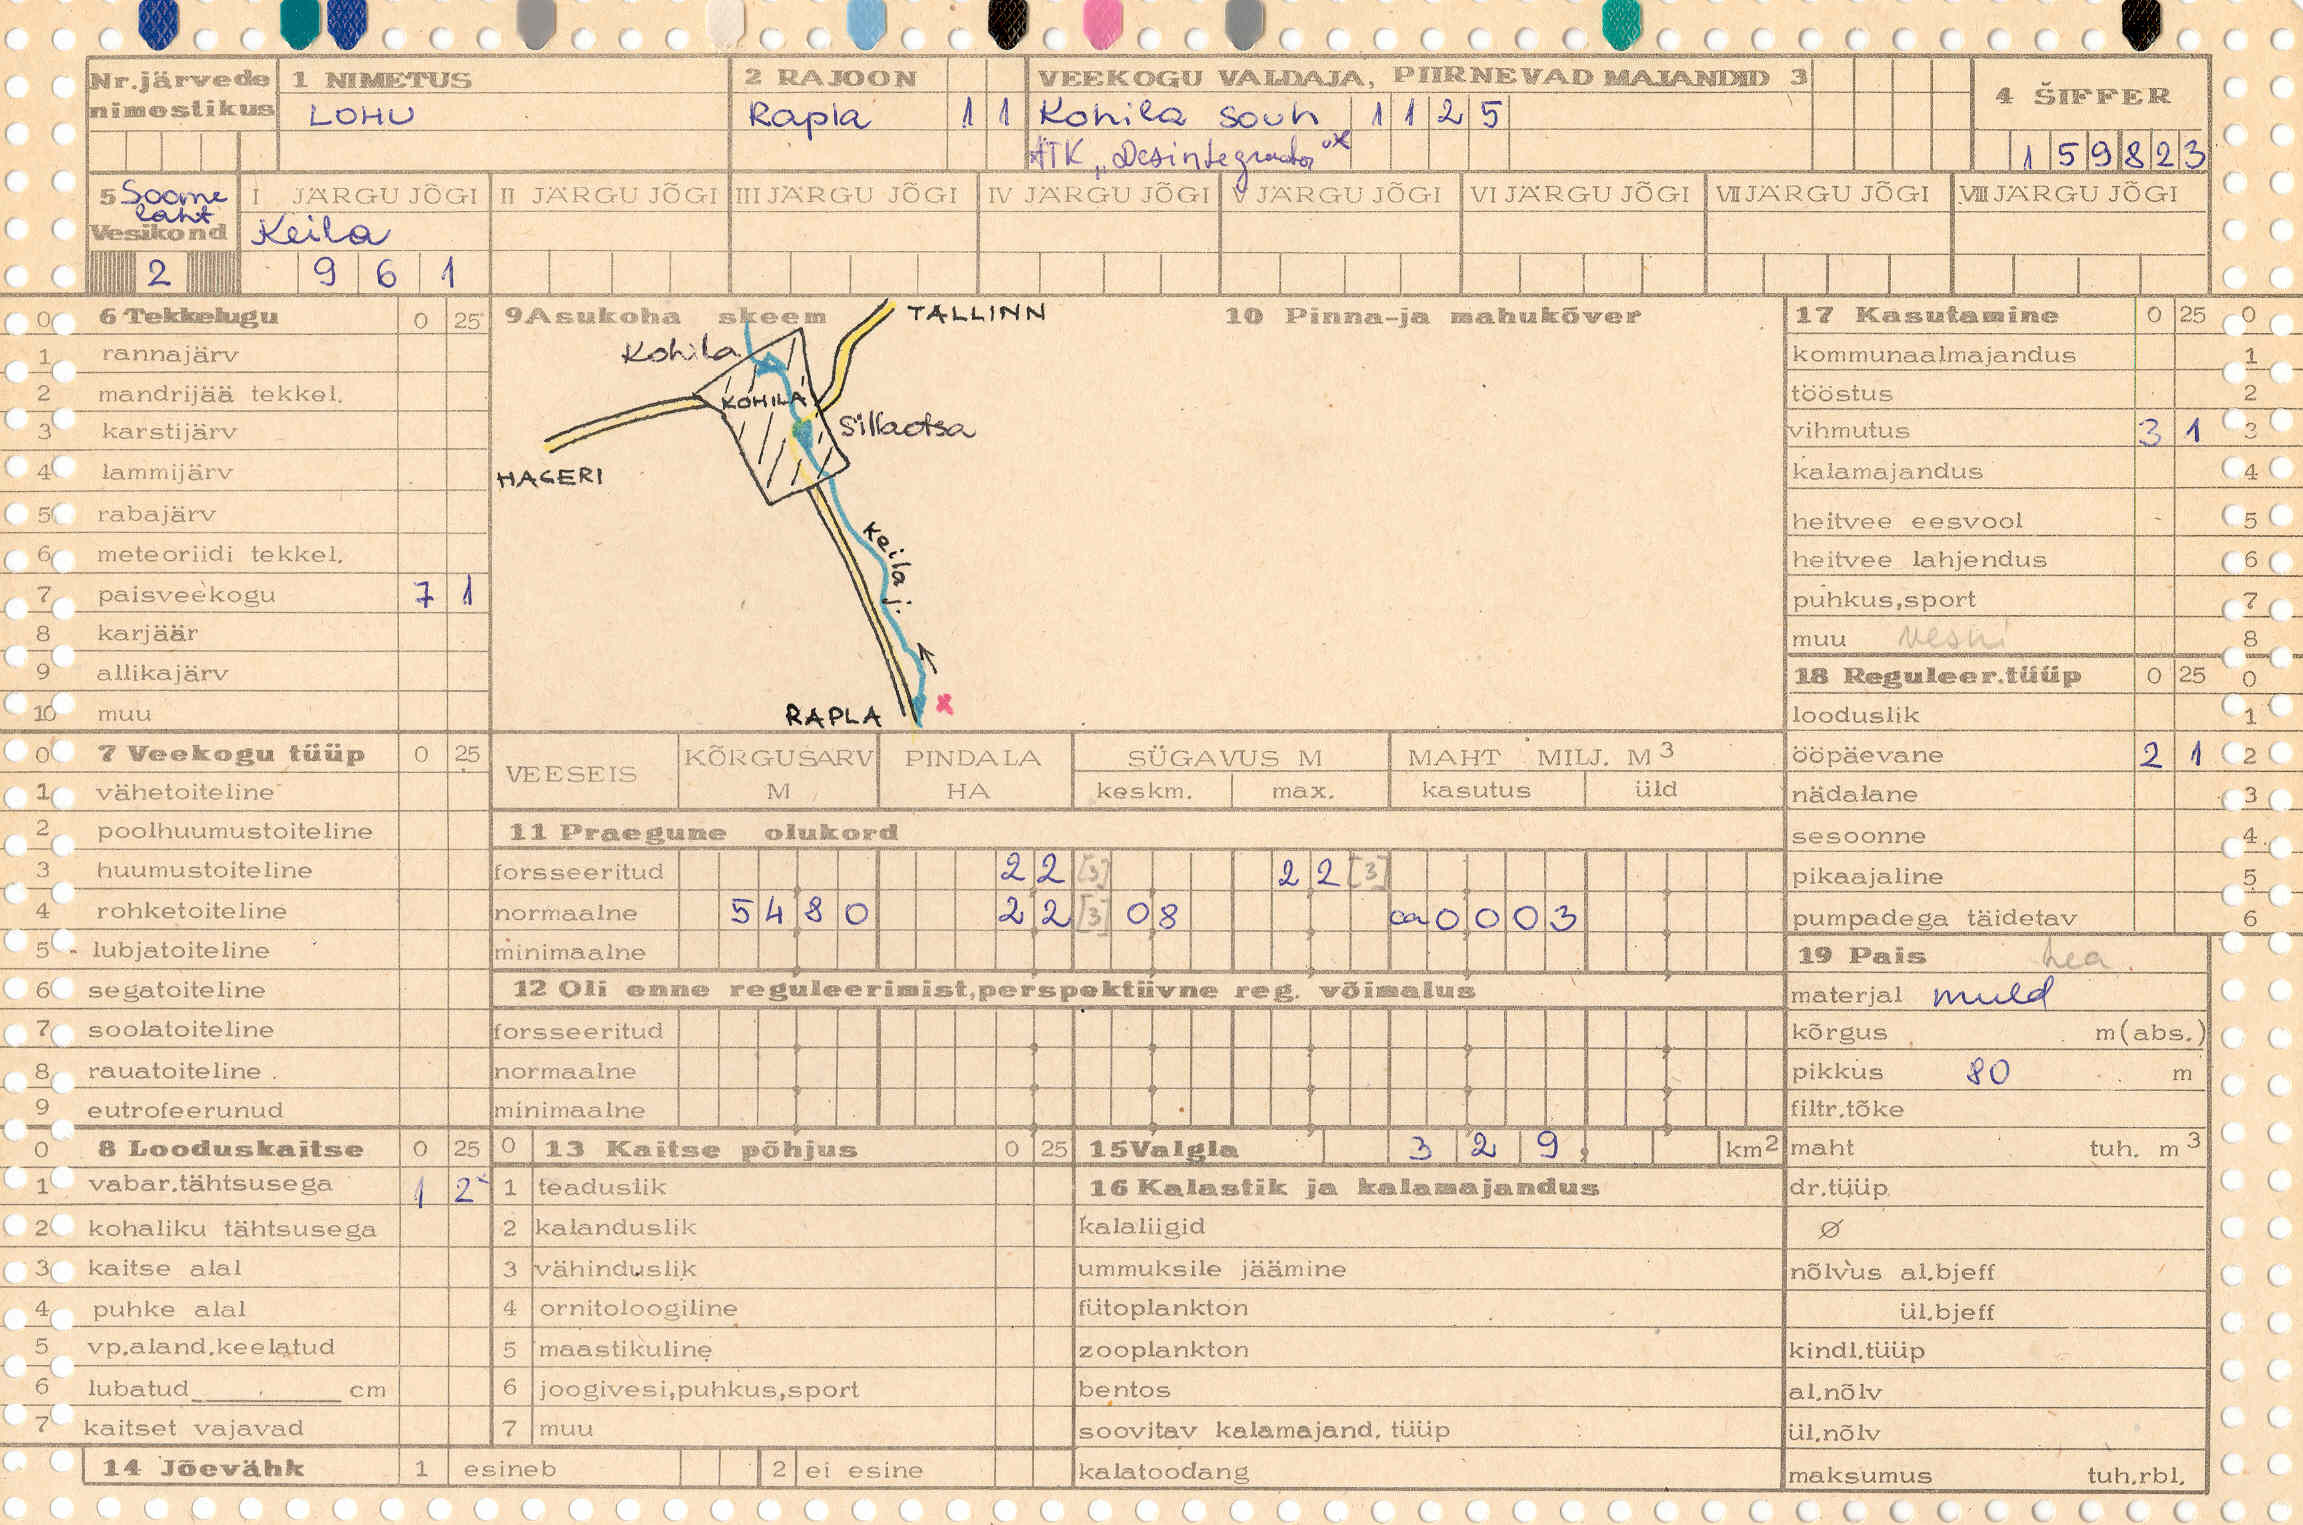 Nr.järvede nimestikus
1 NIMETUS
LOHU
2 RAJOON
Rapla 1 1
VEEKOGU VALDAJA, PIIRNEVAD MAJANDID 3
Kohila sovh 1 1 2 5
ATK „Desintegraator"
4 ŠIFFER
1 5 9 8 2 3
5 Soome laht
Vesikond
2
I JÄRGU JÕGI
Keila
9 6 1
II JÄRGU JÕGI
III JÄRGU JÕGI
IV JÄRGU JÕGI
V JÄRGU JÕGI
VI JÄRGU JÕGI
VII JÄRGU JÕGI
VIII JÄRGU JÕGI
0 6 Tekkelugu 0 25
1 rannajärv
2 mandrijää tekkel.
3 karstijärv
4 lammijärv
5 rabajärv
6 meteoriidi tekkel.
7 paisveekogu 7 1
8 karjäär
9 allikajärv
10 muu
0 7 Veekogu tüüp 0 25
1 vähetoiteline
2 poolhuumustoiteline
3 huumustoiteline
4 rohketoiteline
5 lubjatoiteline
6 segatoiteline
7 soolatoiteline
8 rauatoiteline
9 eutrofeerunud
0 8 Looduskaitse 0 25
1 vabar.tähtsusega 1 2
2 kohaliku tähtsusega
3 kaitse alal
4 puhke alal
5 vp.aland.keelatud
6 lubatud cm
7 kaitset vajavad
14 Jõevähk 1 esineb 2 ei esine
9 Asukoha skeem
TALLINN
Kohila
KOHILA
Sillaotsa
HAGERI
Keila j.
RAPLA
x
10 Pinna-ja mahukõver
VEESEIS
KÕRGUSARV M
PINDALA HA
SÜGAVUS M
keskm. max.
MAHT MILJ. M3
kasutus üld
11 Praegune olukord
forsseeritud 2 2 [3] 2 2 [3]
normaalne 5 4 8 0 2 2 [3] 0 8 ca 0 0 0 3
minimaalne
12 Oli enne reguleerimist,perspektiivne reg. võimalus
forsseeritud
normaalne
minimaalne
0 13 Kaitse põhjus 0 25
1 teaduslik
2 kalanduslik
3 vähinduslik
4 ornitoloogiline
5 maastikuline
6 joogivesi,puhkus,sport
7 muu
15 Valgla 3 2 9 km2
16 Kalastik ja kalamajandus
kalaliigid
ummuksile jäämine
fütoplankton
zooplankton
bentos
soovitav kalamajand. tüüp
kalatoodang
17 Kasutamine 0 25 0
kommunaalmajandus 1
tööstus 2
vihmutus 3 1 3
kalamajandus 4
heitvee eesvool 5
heitvee lahjendus 6
puhkus,sport 7
muu veski 8
18 Reguleer.tüüp 0 25 0
looduslik 1
ööpäevane 2 1 2
nädalane 3
sesoonne 4
pikaajaline 5
pumpadega täidetav 6
19 Pais hea.
materjal muld
kõrgus m(abs.)
pikkus 80 m
filtr.tõke
maht tuh. m3
dr.tüüp
Ø
nõlvus al.bjeff
ül.bjeff
kindl.tüüp
al.nõlv
ül.nõlv
maksumus tuh.rbl.